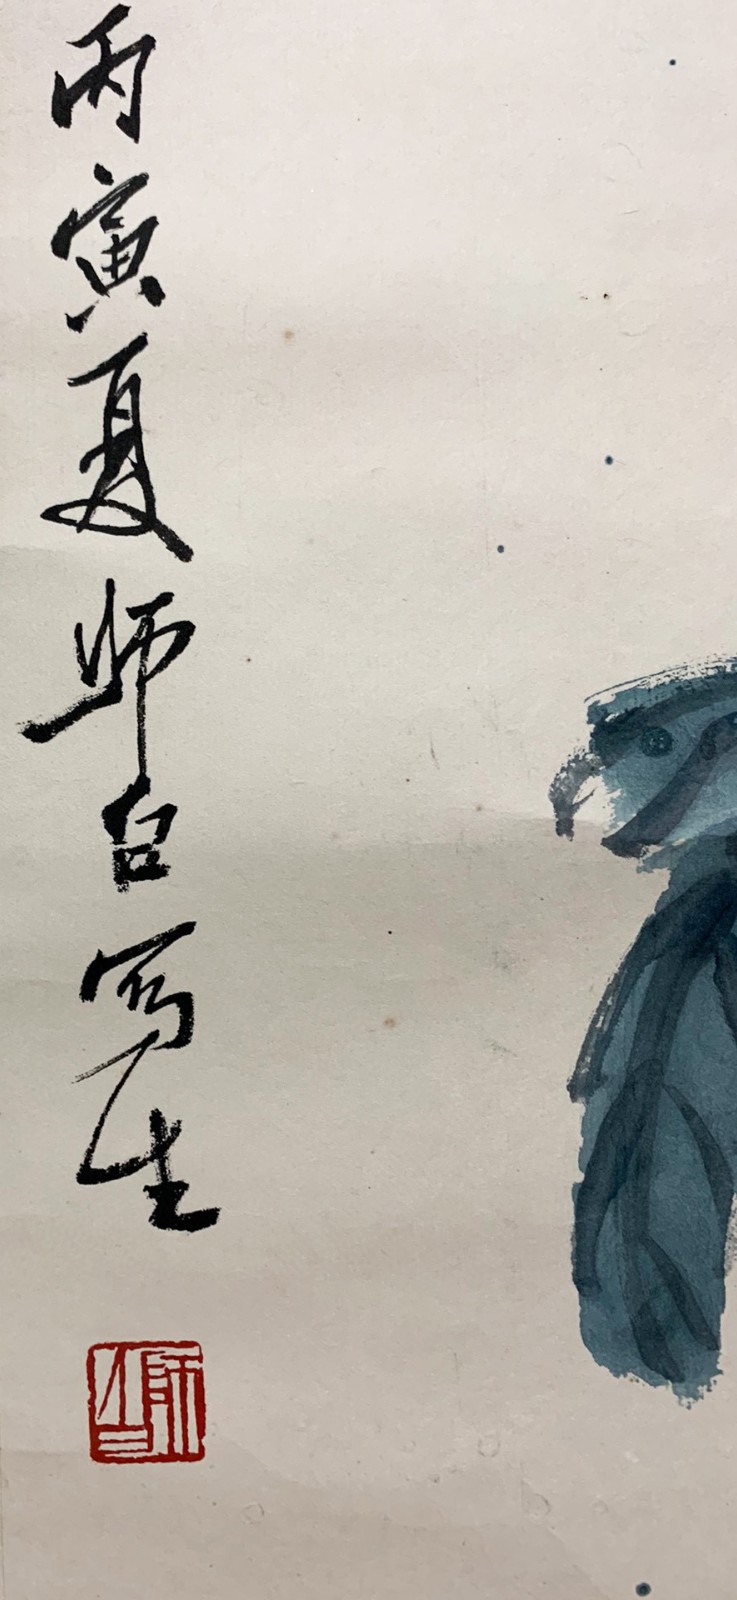 丙寅夏师白写生
師白